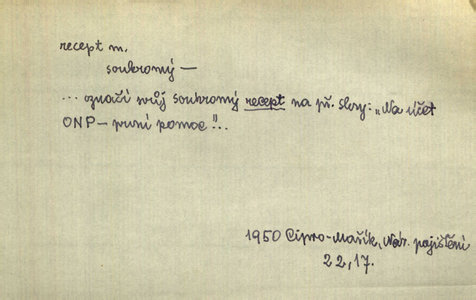 recept m.
soukromý —
... označí svůj soukromý recept na př. slovy: „Na účet
ONP – první pomoc"...
1950 Cipro-Mašík, Nár. pojištění
22, 17.